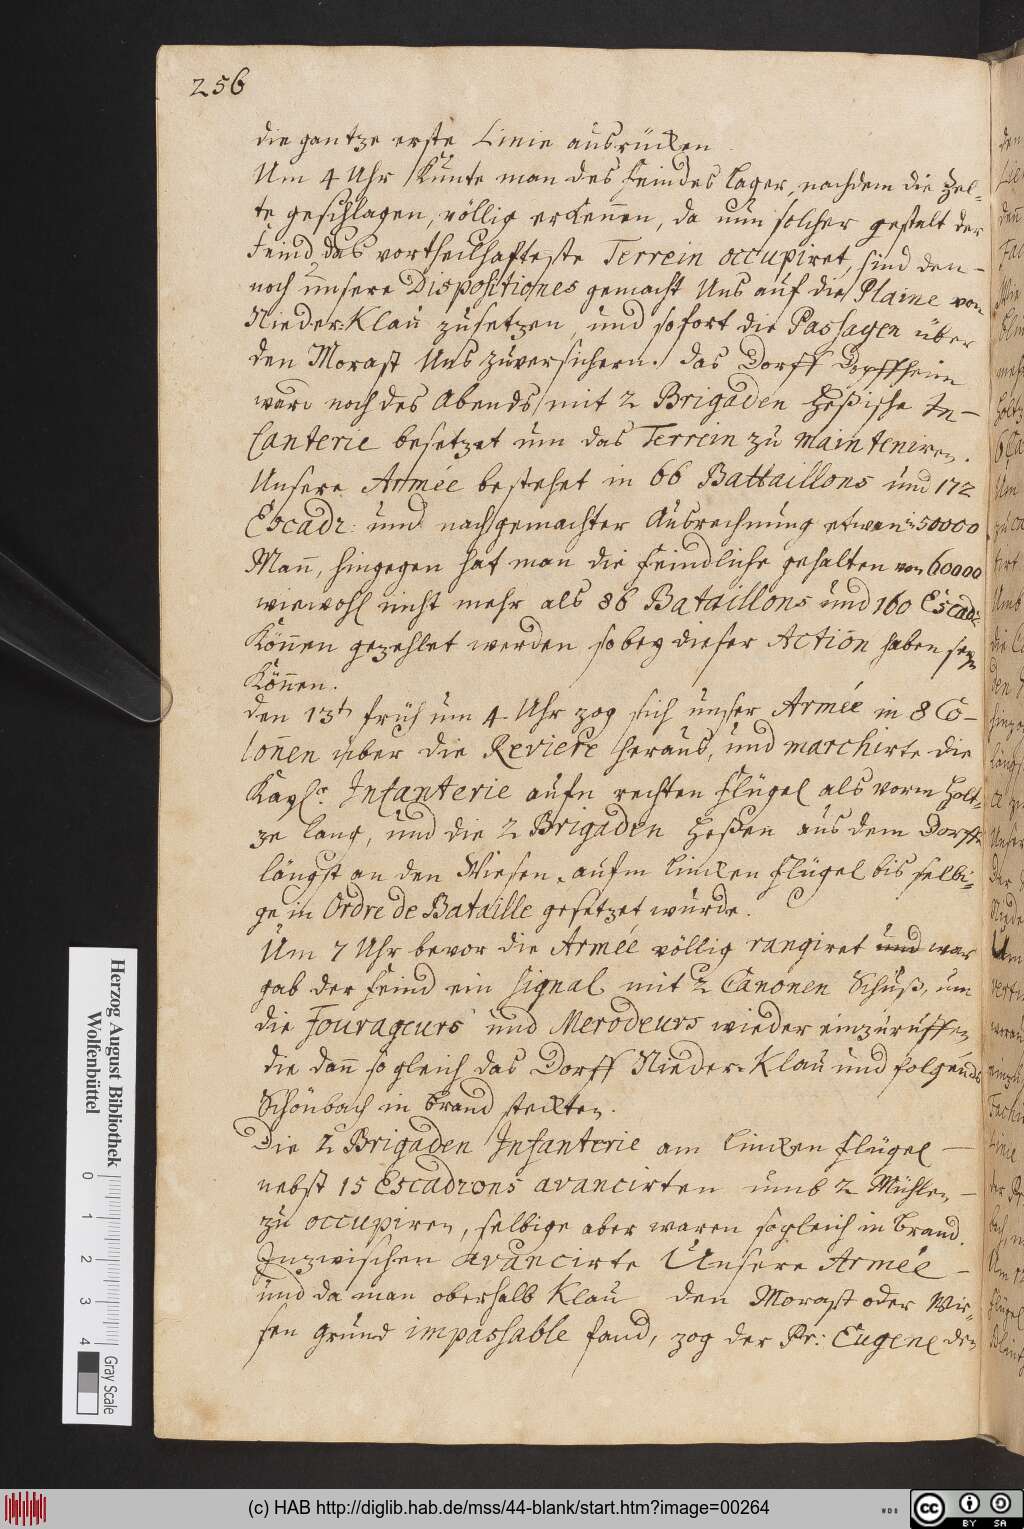 256
die gantze erste Linie ausrücken
Um 4 Uhr kunte man des Feindes Lager, nachdem die Zel-
te geschlagen, völlig erkennen, da nun solcher gestalt der
Feind das vortheilhafteste Terrein occupiret, sind den-
noch unsere Dispositiones gemacht Uns auf die Plaine von
NiederKlau zusetzen, und sofort die Passagen über
den Morast Uns zuversichern. das Dorff Dopffheim
ward noch des Abends mit 2 Brigaden Heßische In-
fanterie besetzet um das Terrein zu mainteniren.
Unsere Armée bestehet in 66 Battaillons und 172
Escadr: und nach gemachter Ausrechnung etwan in 50000
Mann, hingegen hat man die Feindliche gehalten von 60000
wiewohl nicht mehr als 86 Bataillons und 160 Escadr:
Können gezehlet werden so bey dieser Action haben seyn
Können.
den 13t früh um 4 Uhr zog sich unser Armée in 8 Co-
lonnen über die Reviere heraus, und marchirte die
Kaysr. Infanterie aufn rechten Flügel als vorm Holt-
ze lang, und die 2 Brigaden Heßen aus dem Dorffe
längst an den Wiesen aufm lincken Flügel bis selbi-
ge in Ordre de Bataille gesetzet wurde.
Um 7 Uhr bevor die Armée völlig rangiret und war
gab der Feind ein signal mit 2 Canonen Schuß, um
die Fourageurs und Merodeurs wieder einzuruffen
die dann sogleich das Dorff Nieder-Klau und folgends
Schönbach in brand steckten.
Die 2 Brigaden Infanterie am lincken Flügel
nebst 15 Escadrons avancirten umb 2 Mühlen
zu occupiren, selbige aber waren sogleich in brand.
Inzwischen avancirte Unsere Armée
und da man oberhalb Klau den Morast oder Wie-
sen grund impassable fand, zog der Pr: Eugene den
Herzog August Bibliothek
Wolfenbüttel
0 1 2 3 4
Gray Scale
(c) HAB http://diglib.hab.de/mss/44-blank/start.htm?image=00264
WDB
CC BY SA